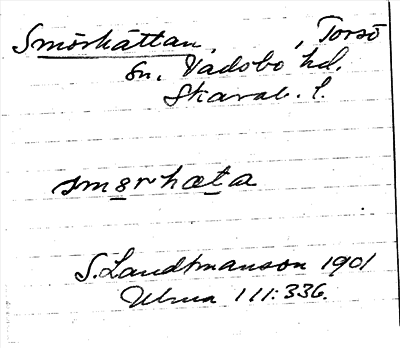 Smörhättan, , Torsö
sn, Vadsbo hd.
Skarab. l.
smɘrhæta
S. Landtmanson 1901
Ulma 111:336.